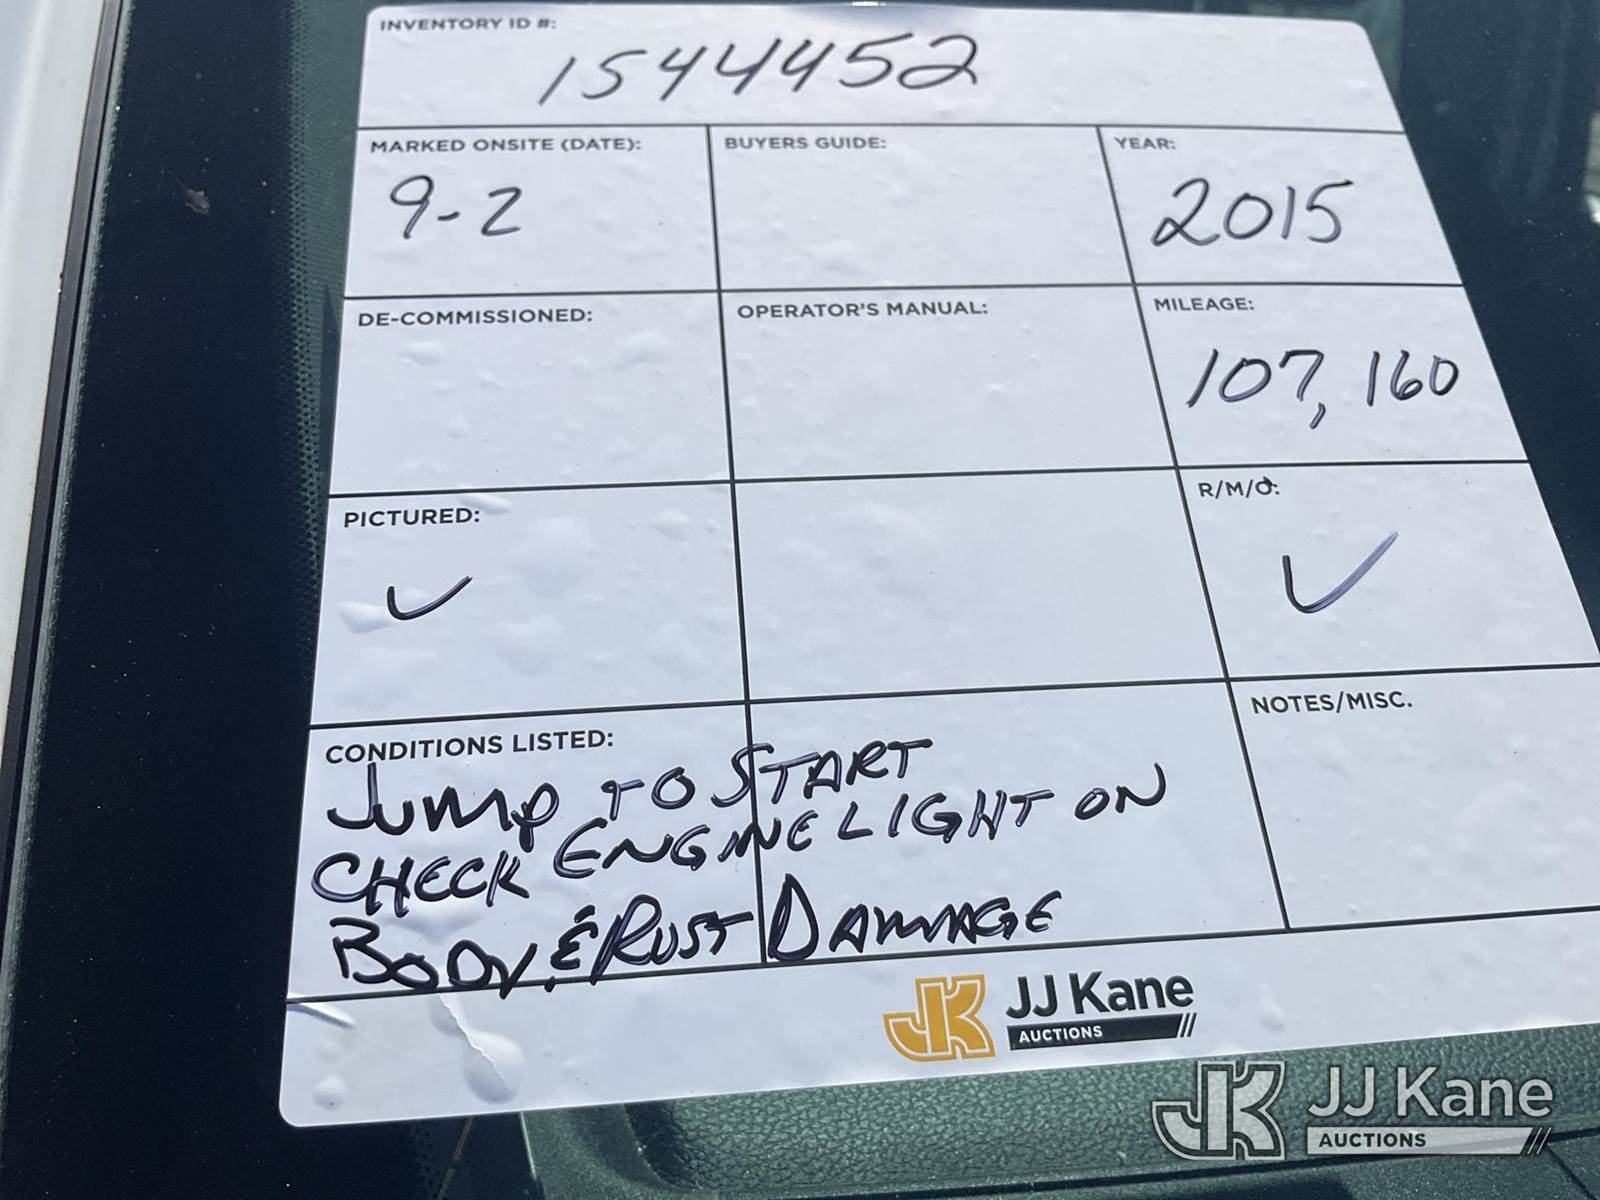 INVENTORY ID #:
1544452
MARKED ONSITE (DATE):
9-2
BUYERS GUIDE:
YEAR:
2015
DE-COMMISSIONED:
OPERATOR'S MANUAL:
MILEAGE:
107,160
PICTURED:
✓
R/M/O:
✓
CONDITIONS LISTED:
JUMP TO START
CHECK ENGINE LIGHT ON
BODY, & RUST DAMAGE
NOTES/MISC.
JK JJ Kane
AUCTIONS
JK JJ Kane
AUCTIONS